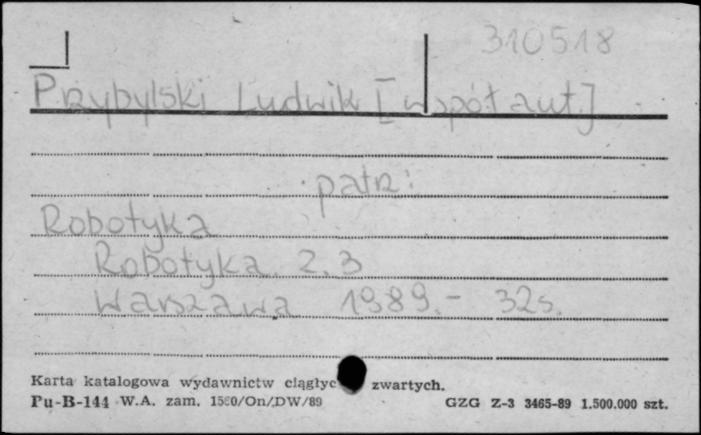 310518
Przybylski Ludwik [współaut.]
patrz:
Robotyka
Robotyka 2.3
Warszawa 1989.- 32s.
Karta katalogowa wydawnictw ciągłyc zwartych.
Pu-B-144 W.A. zam. 1580/On/DW/89 GZG Z-3 3465-89 1.500.000 szt.